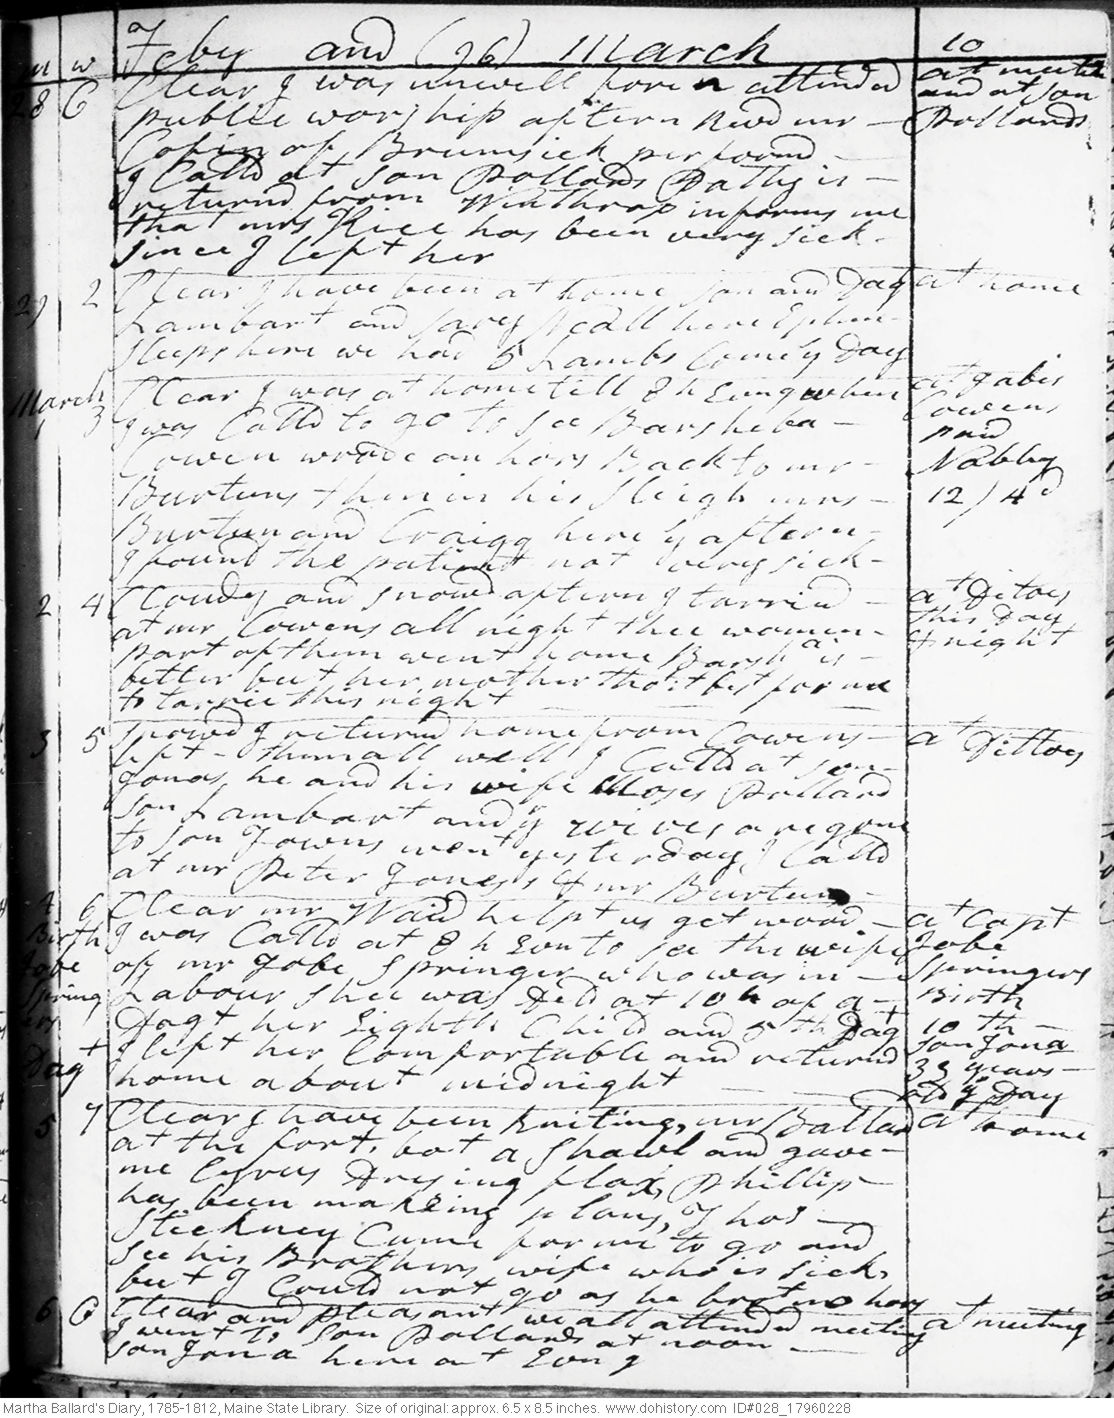 m w Feby and (96) March 10
28 G Clear I was unwell foren attended at meetn
public worship aftern Revd mr and at son
Cofin of Brumsick performd Pollards
I Calld at son Pollards Patty is
returnd from Winthrop informs me
that mrs Rice has been very sick
since I left her
29 2 Clear I have been at home son and Dagt at home
Lambart and savey here Ephm
sleeps here we had 5 Lambs Come y Day
March Clear I was at home till 8 h Evng when at
1 3 I was Calld to go to see Barsheba Cowens
Cowen wrode on hors Back to mr paid
Burtuns then in his sleigh mrs Nabby
Burtun and Craigg here y aftern 12/4d
I found the patient not very sick
2 4 Cloudy and snowd aftern I tarried at Ditoes
at mr Cowens all night thee women this Day
part of them went home Barsha is & night
better but her mother thot best for me
to tarrie this night
3 5 snowd I returnd home from Cowens at Dittoes
left them all well I Calld at son
Jonas, he and his wife Moses Pollard
son Lambart and yr wives are gone
to son Towns went yesterday, I Calld
at mr Peter Joness & mr Burtuns
4 6 Clear mr Waid helpt us get wood at Capt
Birth I was Calld at 8 h Evn to see the wife Jobe
Jobe of mr Jobe Springer who was in Springers
Spring Labour shee was Deld at 10 h of a Birth
ers Dagt her Eighth Child and 5th Dagt 10th
Dagt I left her Comfortable and returnd son Jona
home about midnight 33 years
old y Day
5 7 Clear I have been kniting, mr Ballard at home
at the fort, bot a shawl and gave
me Cyrus Dresing flax, Phillip
has been making plows, Thos
Stickney Came for me to go and
see his Brothers wife who is sick,
but I Could not go as he brot no hors
6 G Clear and pleasant we all attended meeting at meeting
I went to son Pollards at noon
son Jona here at Evng
Martha Ballard's Diary, 1785-1812, Maine State Library. Size of original: approx. 6.5 x 8.5 inches. www.dohistory.com ID#028_17960228